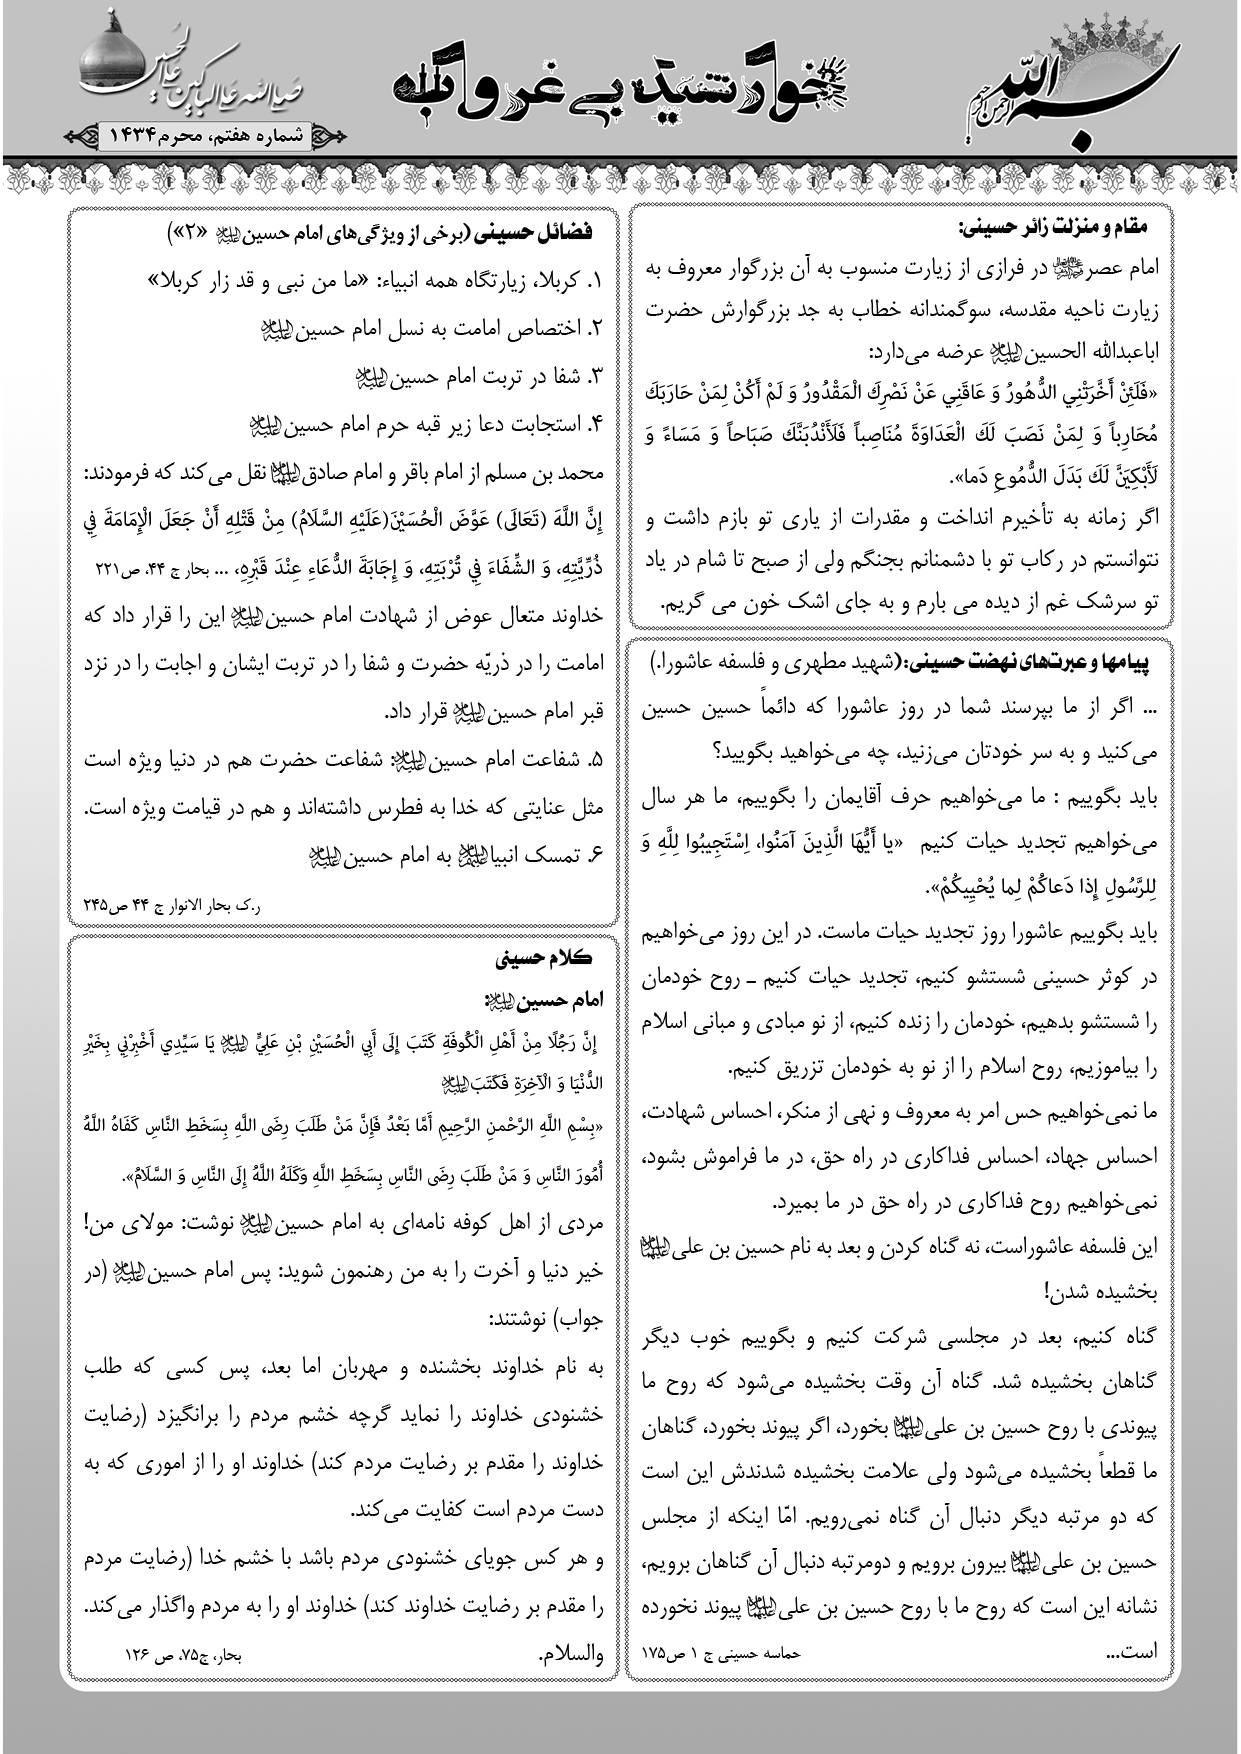 بسم الله الرحمن الرحیم
خورشید بی غروب
صلی الله علیک یا اباعبدالله الحسین
شماره هفتم، محرم۱۴۳۴
مقام و منزلت زائر حسینی:
امام عصر در فرازی از زیارت منسوب به آن بزرگوار معروف به
زیارت ناحیه مقدسه، سوگمندانه خطاب به جد بزرگوارش حضرت
اباعبدالله الحسین علیه‌السلام عرضه می‌دارد:
«فَلَئِنْ أَخَّرَتْنِي الدُّهُورُ وَ عَاقَنِي عَنْ نَصْرِكَ الْمَقْدُورُ وَ لَمْ أَكُنْ لِمَنْ حَارَبَكَ
مُحَارِباً وَ لِمَنْ نَصَبَ لَكَ الْعَدَاوَةَ مُنَاصِباً فَلَأَنْدُبَنَّكَ صَبَاحاً وَ مَسَاءً وَ
لَأَبْكِيَنَّ لَكَ بَدَلَ الدُّمُوعِ دَما».
اگر زمانه به تأخیرم انداخت و مقدرات از یاری تو بازم داشت و
نتوانستم در رکاب تو با دشمنانم بجنگم ولی از صبح تا شام در یاد
تو سرشک غم از دیده می بارم و به جای اشک خون می گریم.
پیامها و عبرت‌های نهضت حسینی:(شهید مطهری و فلسفه عاشورا.)
... اگر از ما بپرسند شما در روز عاشورا که دائماً حسین حسین
می‌کنید و به سر خودتان می‌زنید، چه می‌خواهید بگویید؟
باید بگوییم : ما می‌خواهیم حرف آقایمان را بگوییم، ما هر سال
می‌خواهیم تجدید حیات کنیم «یا أَیُّهَا الَّذِینَ آمَنُوا، اِسْتَجِیبُوا لِلَّهِ وَ
لِلرَّسُولِ إِذا دَعاکُمْ لِما یُحْیِیکُمْ».
باید بگوییم عاشورا روز تجدید حیات ماست. در این روز می‌خواهیم
در کوثر حسینی شستشو کنیم، تجدید حیات کنیم ـ روح خودمان
را شستشو بدهیم، خودمان را زنده کنیم، از نو مبادی و مبانی اسلام
را بیاموزیم، روح اسلام را از نو به خودمان تزریق کنیم.
ما نمی‌خواهیم حس امر به معروف و نهی از منکر، احساس شهادت،
احساس جهاد، احساس فداکاری در راه حق، در ما فراموش بشود،
نمی‌خواهیم روح فداکاری در راه حق در ما بمیرد.
این فلسفه عاشوراست، نه گناه کردن و بعد به نام حسین بن علی علیهماالسلام
بخشیده شدن!
گناه کنیم، بعد در مجلسی شرکت کنیم و بگوییم خوب دیگر
گناهان بخشیده شد. گناه آن وقت بخشیده می‌شود که روح ما
پیوندی با روح حسین بن علی علیهماالسلام بخورد، اگر پیوند بخورد، گناهان
ما قطعاً بخشیده می‌شود ولی علامت بخشیده شدندش این است
که دو مرتبه دیگر دنبال آن گناه نمی‌رویم. امّا اینکه از مجلس
حسین بن علی علیهماالسلام بیرون برویم و دومرتبه دنبال آن گناهان برویم،
نشانه این است که روح ما با روح حسین بن علی علیهماالسلام پیوند نخورده
است... حماسه حسینی ج ۱ ص۱۷۵
فضائل حسینی (برخی از ویژگی‌های امام حسین علیه‌السلام «۲»)
۱. کربلا، زیارتگاه همه انبیاء: «ما من نبی و قد زار کربلا»
۲. اختصاص امامت به نسل امام حسین علیه‌السلام
۳. شفا در تربت امام حسین علیه‌السلام
۴. استجابت دعا زیر قبه حرم امام حسین علیه‌السلام
محمد بن مسلم از امام باقر و امام صادق علیهماالسلام نقل می‌کند که فرمودند:
إِنَّ اللَّهَ (تَعَالَى) عَوَّضَ الْحُسَيْنَ(عَلَيْهِ السَّلَامُ) مِنْ قَتْلِهِ أَنْ جَعَلَ الْإِمَامَةَ فِي
ذُرِّيَّتِهِ، وَ الشِّفَاءَ فِي تُرْبَتِهِ، وَ إِجَابَةَ الدُّعَاءِ عِنْدَ قَبْرِهِ، ... بحار ج ۴۴، ص۲۲۱
خداوند متعال عوض از شهادت امام حسین علیه‌السلام این را قرار داد که
امامت را در ذریّه حضرت و شفا را در تربت ایشان و اجابت را در نزد
قبر امام حسین علیه‌السلام قرار داد.
۵. شفاعت امام حسین علیه‌السلام: شفاعت حضرت هم در دنیا ویژه است
مثل عنایتی که خدا به فطرس داشته‌اند و هم در قیامت ویژه است.
۶. تمسک انبیا علیهم‌السلام به امام حسین علیه‌السلام
ر.ک بحار الانوار ج ۴۴ ص۲۴۵
کلام حسینی
امام حسین علیه‌السلام:
إِنَّ رَجُلًا مِنْ أَهْلِ الْكُوفَةِ كَتَبَ إِلَى أَبِي الْحُسَيْنِ بْنِ عَلِيٍّ علیه‌السلام يَا سَيِّدِي أَخْبِرْنِي بِخَيْرِ
الدُّنْيَا وَ الْآخِرَةِ فَكَتَبَ علیه‌السلام
«بِسْمِ اللَّهِ الرَّحْمنِ الرَّحِيمِ أَمَّا بَعْدُ فَإِنَّ مَنْ طَلَبَ رِضَى اللَّهِ بِسَخَطِ النَّاسِ كَفَاهُ اللَّهُ
أُمُورَ النَّاسِ وَ مَنْ طَلَبَ رِضَى النَّاسِ بِسَخَطِ اللَّهِ وَكَلَهُ اللَّهُ إِلَى النَّاسِ وَ السَّلَامُ».
مردی از اهل کوفه نامه‌ای به امام حسین علیه‌السلام نوشت: مولای من!
خیر دنیا و آخرت را به من رهنمون شوید: پس امام حسین علیه‌السلام (در
جواب) نوشتند:
به نام خداوند بخشنده و مهربان اما بعد، پس کسی که طلب
خشنودی خداوند را نماید گرچه خشم مردم را برانگیزد (رضایت
خداوند را مقدم بر رضایت مردم کند) خداوند او را از اموری که به
دست مردم است کفایت می‌کند.
و هر کس جویای خشنودی مردم باشد با خشم خدا (رضایت مردم
را مقدم بر رضایت خداوند کند) خداوند او را به مردم واگذار می‌کند.
والسلام. بحار، ج۷۵، ص ۱۲۶